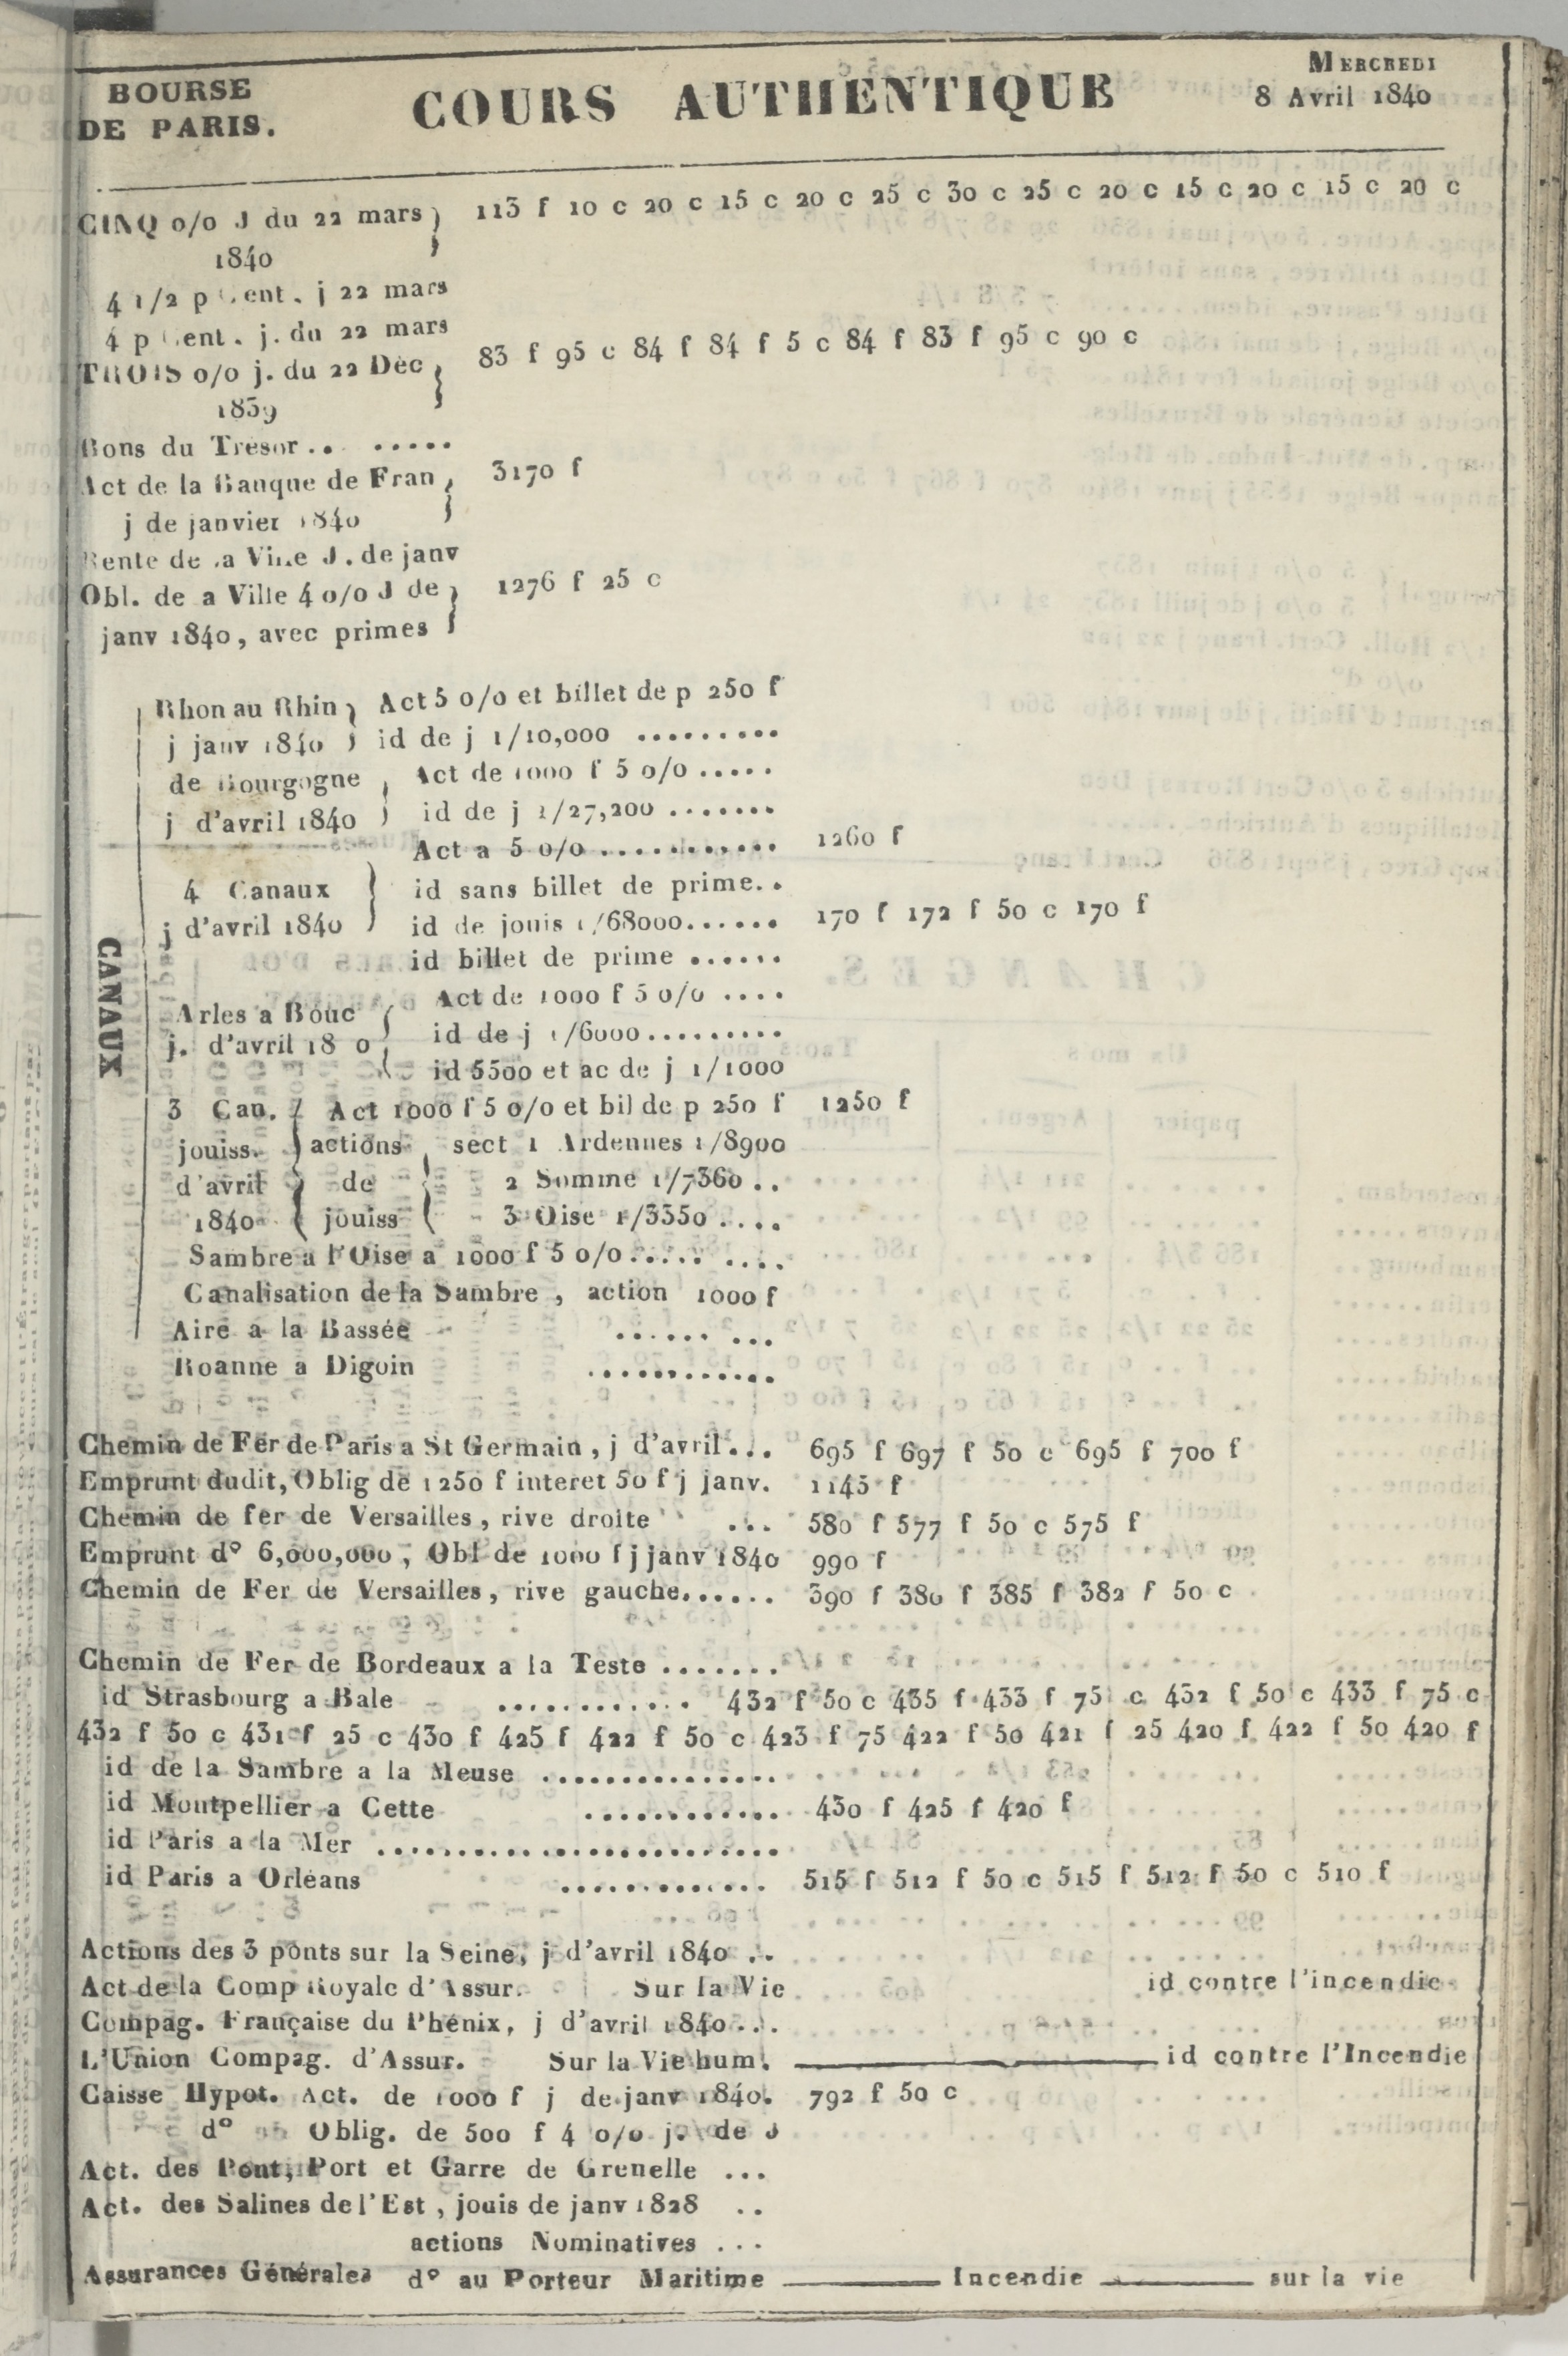 BOURSE
DE PARIS.
COURS AUTHENTIQUE
MERCREDI
8 Avril 1840
CINQ o/o J du 22 mars 113 f 10 c 20 c 15 c 20 c 25 c 30 c 25 c 20 c 15 c 20 c 15 c 20 c
1840
4 1/2 p Cent. j 22 mars
4 p Cent. j. du 22 mars
TROIS o/o j. du 22 Déc 83 f 95 c 84 f 84 f 5 c 84 f 83 f 95 c 90 c
1839
Bons du Tresor.. .....
Act de la Banque de Fran 3170 f
j de janvier 1840
Rente de la Ville J. de janv
Obl. de a Ville 4 o/o J de 1276 f 25 c
janv 1840, avec primes
CANAUX
Rhon au Rhin Act 5 o/o et billet de p 250 f
j janv 1840 id de j 1/10,000 .........
de Bourgogne Act de 1000 f 5 o/o .....
j d'avril 1840 id de j 1/27,200 .......
Act a 5 o/o ............ 1260 f
4 Canaux id sans billet de prime..
j d'avril 1840 id de jouis 1/68000...... 170 f 172 f 50 c 170 f
id billet de prime ......
Arles a Bouc Act de 1000 f 5 o/o ....
j. d'avril 18 0 id de j 1/6000.........
id 5500 et ac de j 1/1000
3 Can. Act 1000 f 5 o/o et bil de p 250 f 1250 f
jouiss. actions sect 1 Ardennes 1/8900
d'avril de 2 Somme 1/7360 ..
1840 jouiss 3 Oise 1/3350 ....
Sambre a l'Oise a 1000 f 5 o/o..... ....
Canalisation de la Sambre, action 1000 f
Aire a la Bassée ...... ...
Roanne a Digoin ............
Chemin de Fer de Paris a St Germain, j d'avril... 695 f 697 f 50 c 695 f 700 f
Emprunt dudit, Oblig de 1250 f interet 50 f j janv. 1145 f
Chemin de fer de Versailles, rive droite ... 580 f 577 f 50 c 575 f
Emprunt d° 6,000,000, Obl de 1000 f j janv 1840 990 f
Chemin de Fer de Versailles, rive gauche...... 390 f 380 f 385 f 382 f 50 c
Chemin de Fer de Bordeaux a la Teste .......
id Strasbourg a Bale ............ 432 f 50 c 435 f 433 f 75 c 432 f 50 c 433 f 75 c
432 f 50 c 431 f 25 c 430 f 425 f 422 f 50 c 423 f 75 422 f 50 421 f 25 420 f 422 f 50 420 f
id de la Sambre a la Meuse ...............
id Montpellier a Cette ............ 430 f 425 f 420 f
id Paris a la Mer .........................
id Paris a Orléans ............. 515 f 512 f 50 c 515 f 512 f 50 c 510 f
Actions des 3 ponts sur la Seine, j d'avril 1840 ..
Act de la Comp Royale d'Assur. Sur la Vie id contre l'incendie
Compag. Française du Phénix, j d'avril 1840...
L'Union Compag. d'Assur. Sur la Vie hum. id contre l'Incendie
Caisse Hypot. Act. de 1000 f j de janv 1840. 792 f 50 c
d° Oblig. de 500 f 4 o/o j. de J
Act. des Pont, Port et Garre de Grenelle ...
Act. des Salines de l'Est, jouis de janv 1828 ..
actions Nominatives ...
Assurances Générales d° au Porteur Maritime Incendie sur la vie